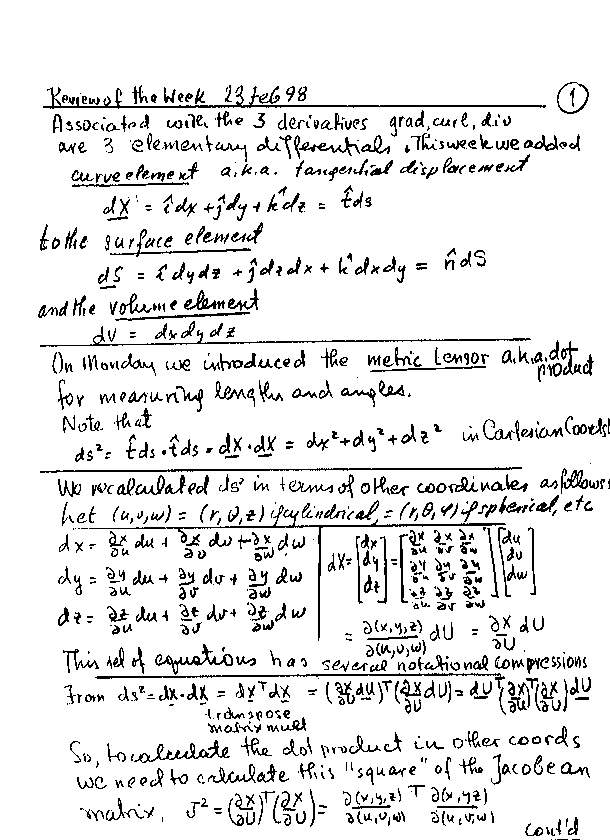 Review of the Week 23 Feb 98 ①
Associated with the 3 derivatives grad, curl, div
are 3 elementary differentials. This week we added
curve element a.k.a. tangential displacement
dX = îdx + ĵdy + k̂dz = t̂ds
to the surface element
dS = îdydz + ĵdzdx + k̂dxdy = n̂dS
and the volume element
dV = dxdydz
On Monday we introduced the metric tensor a.k.a. dot product
for measuring lengths and angles.
Note that
ds² = t̂ds·t̂ds = dX·dX = dx²+dy²+dz² in Cartesian Coords!
We recalculated ds² in terms of other coordinates as follows:
Let (u,v,w) = (r,θ,z) if cylindrical, = (r,θ,φ) if spherical, etc
dx = ∂x/∂u du + ∂x/∂v dv + ∂x/∂w dw
dy = ∂y/∂u du + ∂y/∂v dv + ∂y/∂w dw
dz = ∂z/∂u du + ∂z/∂v dv + ∂z/∂w dw
dX = [dx dy dz] = [∂x/∂u ∂x/∂v ∂x/∂w ∂y/∂u ∂y/∂v ∂y/∂w ∂z/∂u ∂z/∂v ∂z/∂w] [du dv dw]
= ∂(x,y,z)/∂(u,v,w) dU = ∂X/∂U dU
This set of equations has several notational compressions
From ds² = dX·dX = dXᵀdX = (∂X/∂U dU)ᵀ(∂X/∂U dU) = dUᵀ(∂X/∂U)ᵀ(∂X/∂U)dU
transpose
matrix mult
So, to calculate the dot product in other coords
we need to calculate this "square" of the Jacobean
matrix, J² = (∂X/∂U)ᵀ(∂X/∂U) = ∂(x,y,z)/∂(u,v,w)ᵀ ∂(x,y,z)/∂(u,v,w)
cont'd